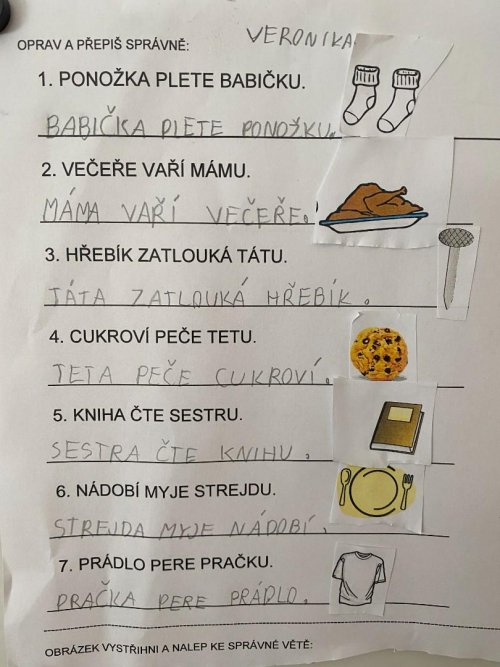 VERONIKA
OPRAV A PŘEPIŠ SPRÁVNĚ:
1. PONOŽKA PLETE BABIČKU.
BABIČKA PLETE PONOŽKU.
2. VEČEŘE VAŘÍ MÁMU.
MÁMA VAŘÍ VEČEŘE.
3. HŘEBÍK ZATLOUKÁ TÁTU.
TÁTA ZATLOUKÁ HŘEBÍK.
4. CUKROVÍ PEČE TETU.
TETA PEČE CUKROVÍ.
5. KNIHA ČTE SESTRU.
SESTRA ČTE KNIHU.
6. NÁDOBÍ MYJE STREJDU.
STREJDA MYJE NÁDOBÍ.
7. PRÁDLO PERE PRAČKU.
PRAČKA PERE PRÁDLO.
OBRÁZEK VYSTŘIHNI A NALEP KE SPRÁVNÉ VĚTĚ: